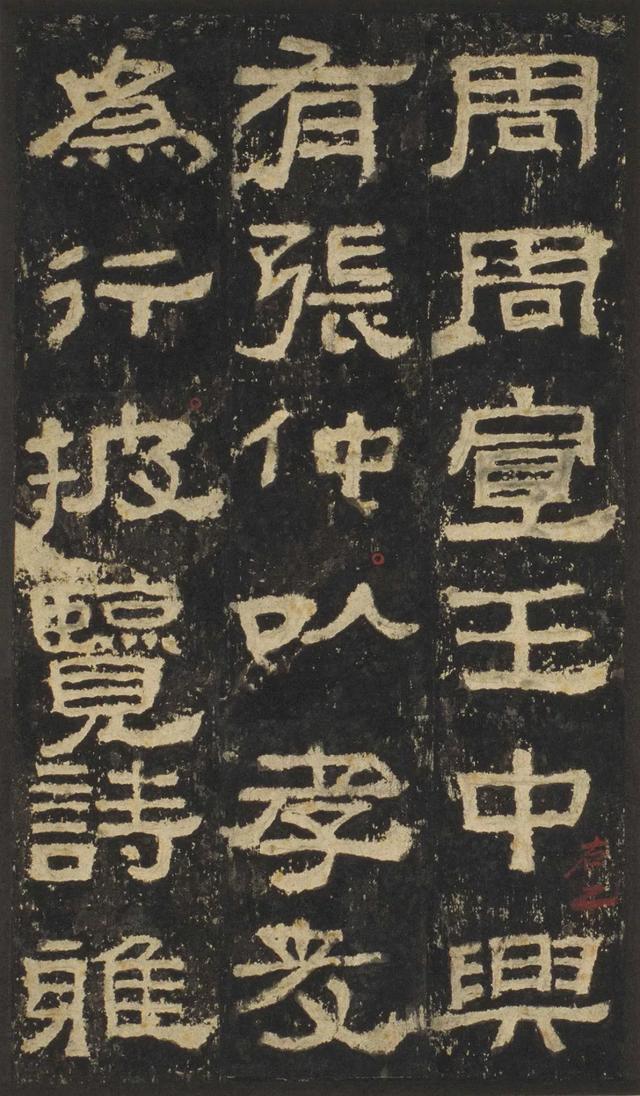 周周宣王中興
有張仲以孝友
為行披覽詩雅